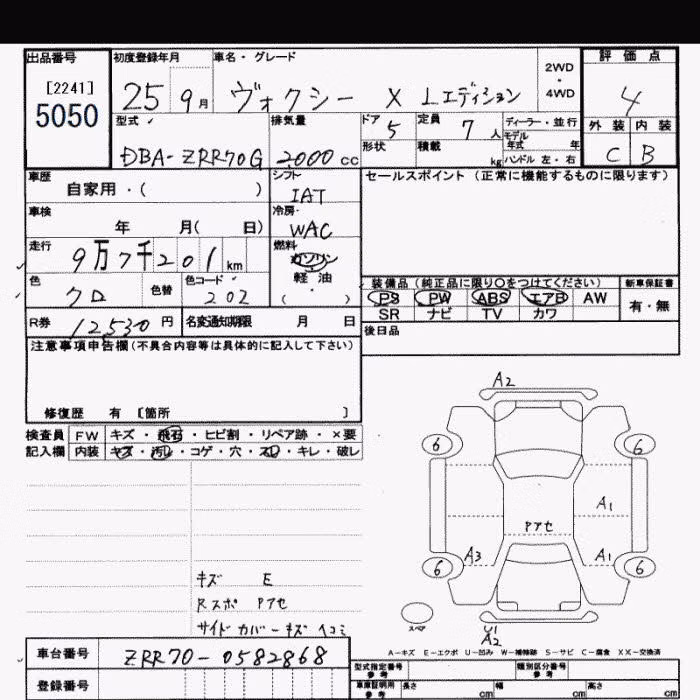 出品番号 初度登録年月 車名・グレード 2WD・4WD 評価点
[2241]
5050
25 9月 ヴォクシー X Lエディション 4
型式 排気量 ドア 5 定員 7人 ディーラー・並行 外装 内装
形状 積載 kg モデル年式 年
DBA-ZRR70G 2000cc ハンドル 左・右 C B
車歴 シフト セールスポイント (正常に機能するものに限ります)
自家用・( ) IAT
車検 冷房
年 月( 日) WAC
走行 燃料
9万7千201km ガソリン
軽油
色 クロ 色替 色コード 202 ( )
装備品 (純正品に限り〇をつけてください) 新車保証書
PS PW ABS エアB AW 有・無
SR ナビ TV カワ
R券 12530円 名変通知期限 月 日
後日品
注意事項申告欄(不具合内容等は具体的に記入して下さい)
修復歴 有 〔箇所 〕
検査員 FW キズ・飛石・ヒビ割・リペア跡・×要
記入欄 内装 キズ・汚レ・コゲ・穴・スレ・キレ・破レ
A2
6 6
A1
Pアセ
A3 A1
6 6
キズ E
Rスポ Pアセ
サイドカバーキズヘコミ
スペア
U1
A2
A-キズ E-エクボ U-凹み W-補修跡 S-サビ C-腐食 XX-交換済
車台番号 ZRR70-0582868
登録番号
型式指定番号 参考 類別区分番号 参考
車庫証明用 参考 長さ cm 幅 cm 高さ cm